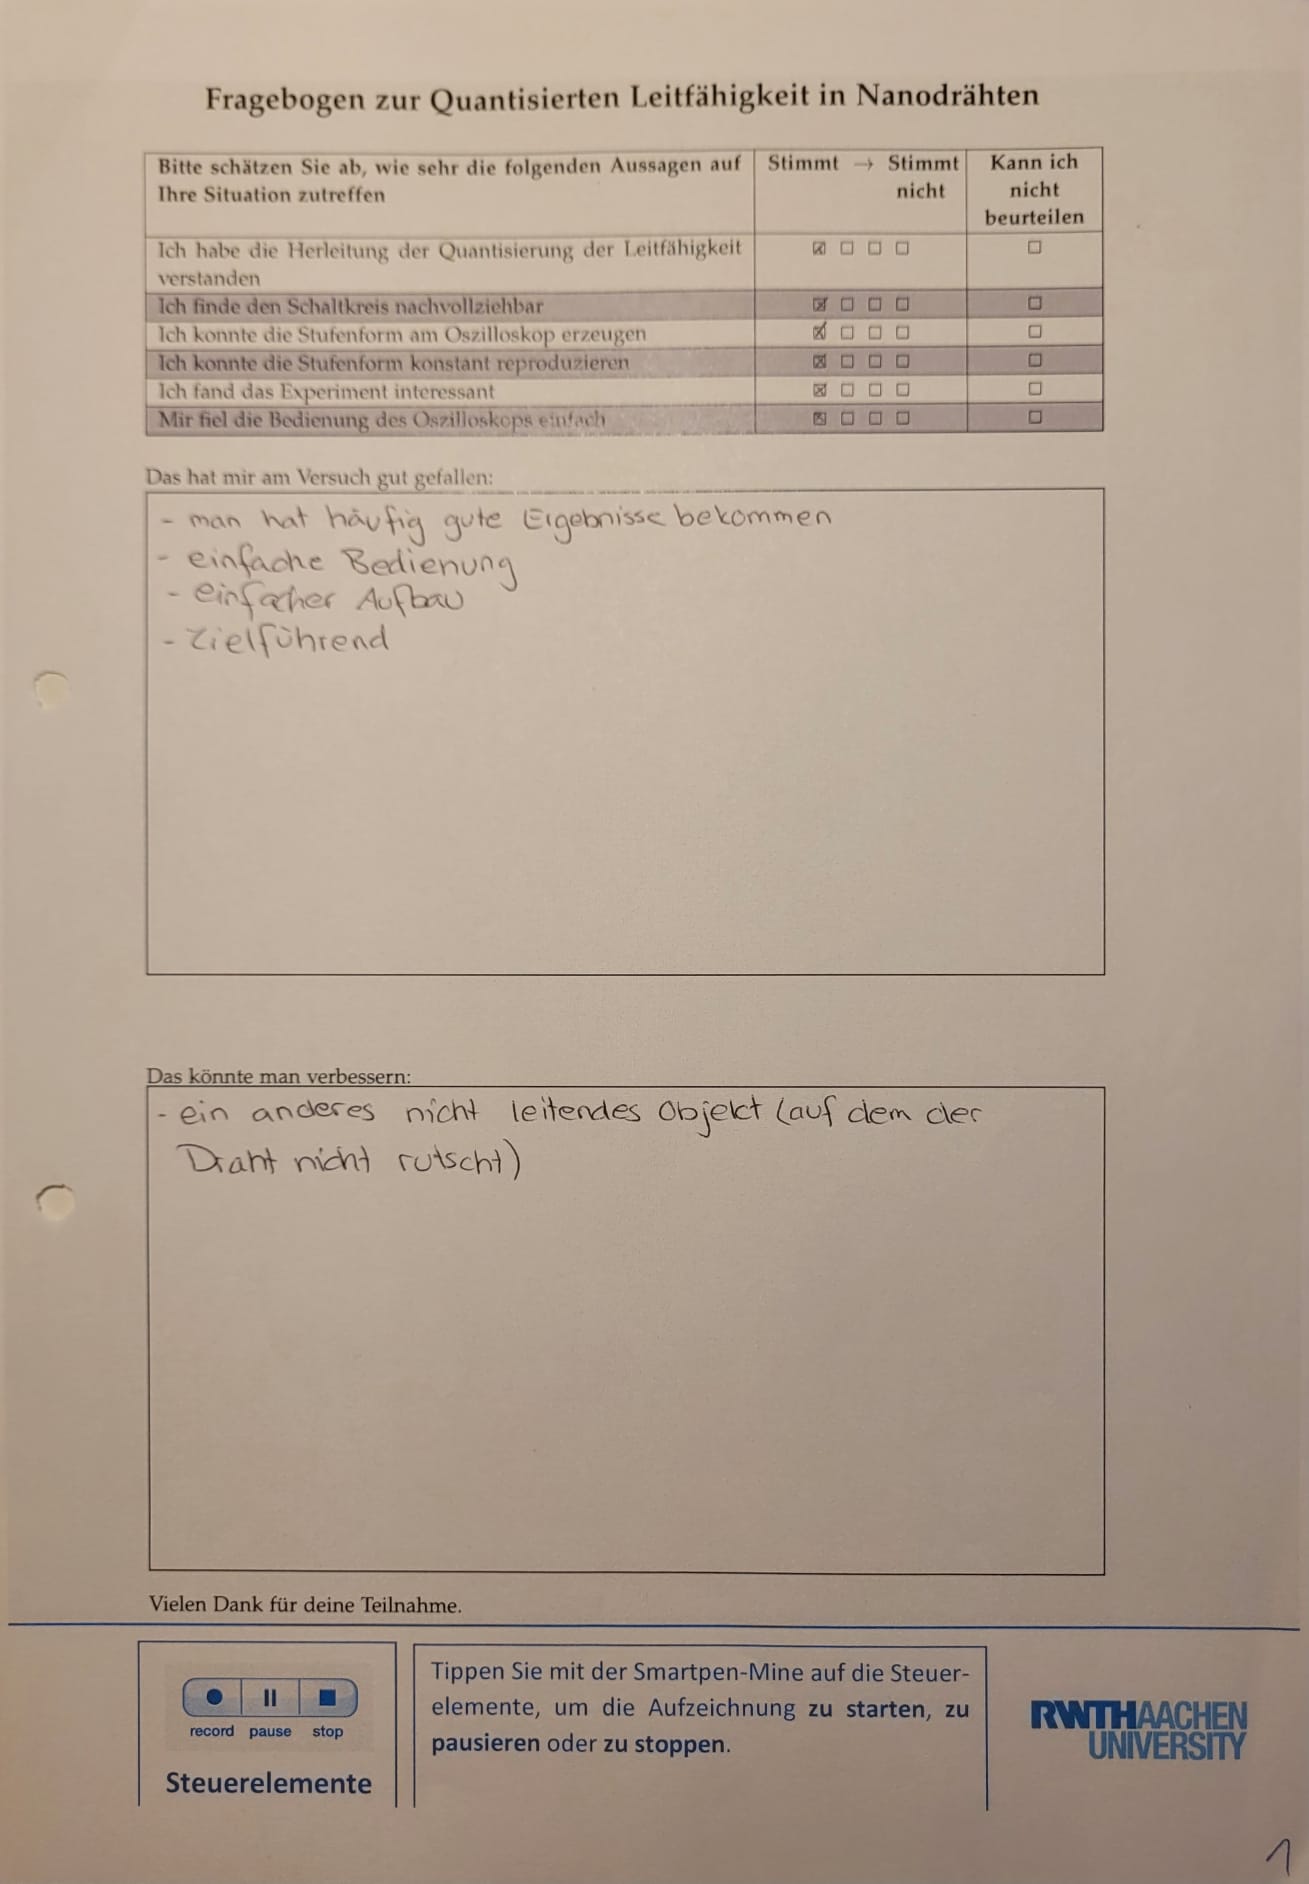 Fragebogen zur Quantisierten Leitfähigkeit in Nanodrähten
Bitte schätzen Sie ab, wie sehr die folgenden Aussagen auf
Ihre Situation zutreffen
Stimmt → Stimmt
nicht
Kann ich
nicht
beurteilen
Ich habe die Herleitung der Quantisierung der Leitfähigkeit
verstanden
☒ ☐ ☐ ☐ ☐
Ich finde den Schaltkreis nachvollziehbar ☒ ☐ ☐ ☐ ☐
Ich konnte die Stufenform am Oszilloskop erzeugen ☒ ☐ ☐ ☐ ☐
Ich konnte die Stufenform konstant reproduzieren ☒ ☐ ☐ ☐ ☐
Ich fand das Experiment interessant ☒ ☐ ☐ ☐ ☐
Mir fiel die Bedienung des Oszilloskops einfach ☒ ☐ ☐ ☐ ☐
Das hat mir am Versuch gut gefallen:
- man hat häufig gute Ergebnisse bekommen
- einfache Bedienung
- einfacher Aufbau
- Zielführend
Das könnte man verbessern:
- ein anderes nicht leitendes Objekt (auf dem der
Draht nicht rutscht)
Vielen Dank für deine Teilnahme.
record pause stop
Steuerelemente
Tippen Sie mit der Smartpen-Mine auf die Steuer-
elemente, um die Aufzeichnung zu starten, zu
pausieren oder zu stoppen.
RWTHAACHEN
UNIVERSITY
1